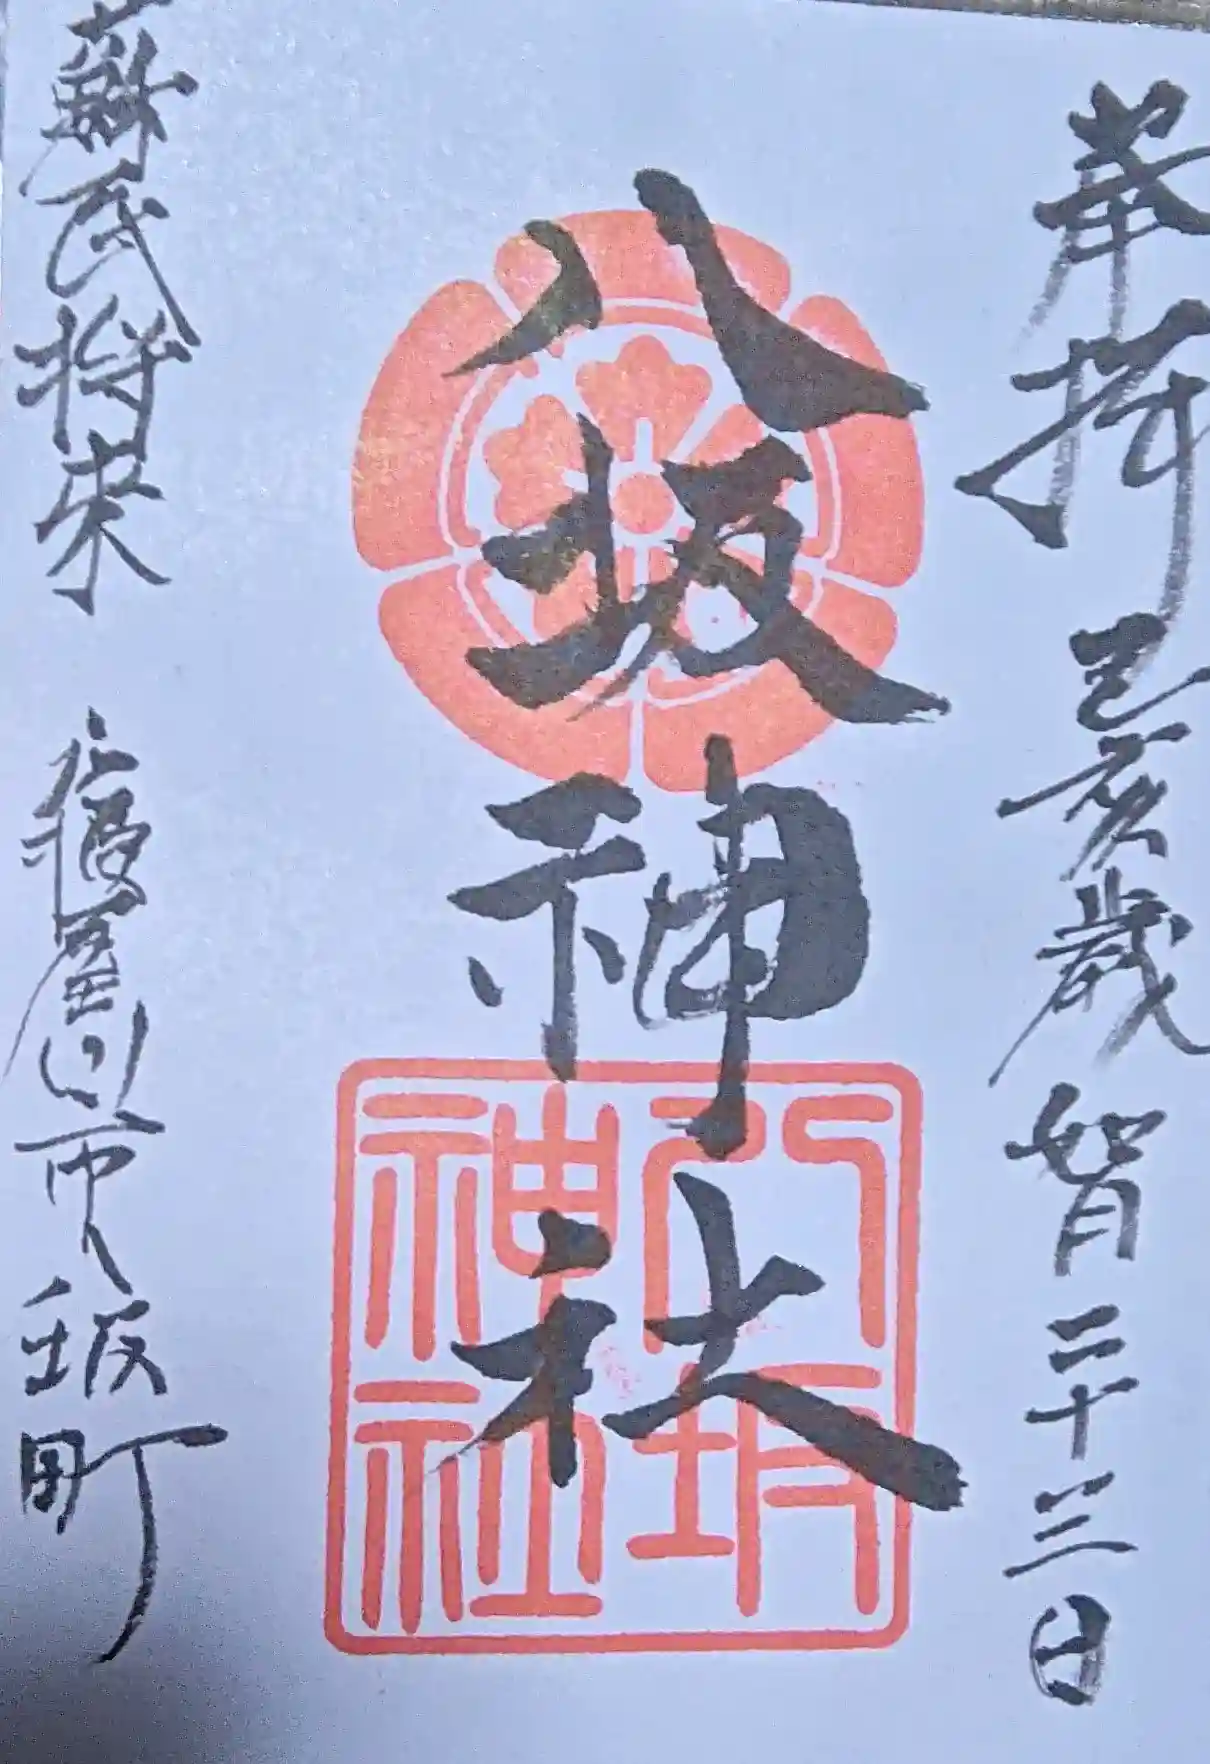 奉拝 己亥歳 如月二十三日
八坂神社
八坂神社
蘇民将来 寝屋川市八坂町